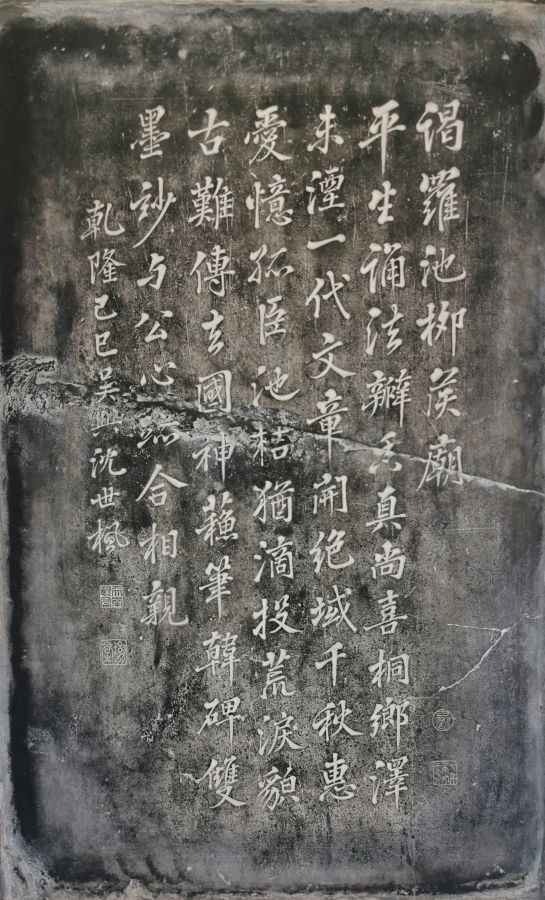 謁羅池栁矦廟
平生誦法瓣香真尚喜桐鄉澤
未湮一代文章開絕域千秋惠
愛憶孤臣池枯猶滴投荒淚貌
古難傳去國神蘓筆韓碑雙
墨玅与公心跡合相親
乾隆己巳吳興沈世楓